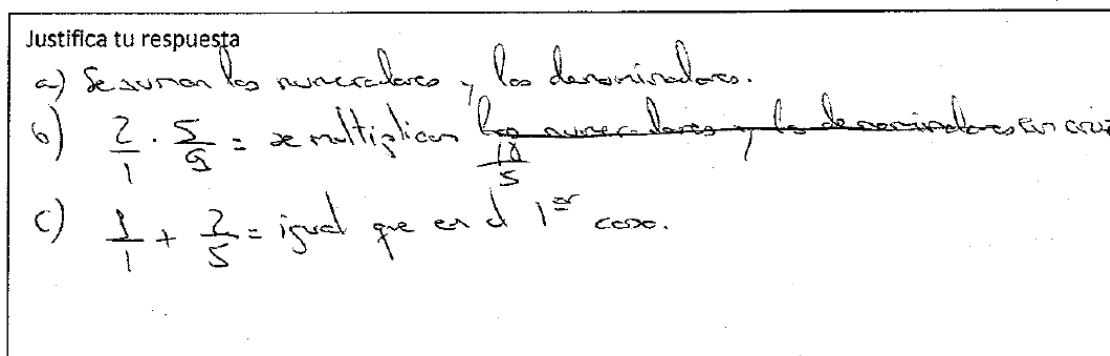 Justifica tu respuesta
a) Se suman los numeradores y los denominadores.
b) 2/1 · 5/9 = se multiplican los numeradores y los denominadores en cruz
10/5
c) 1/1 + 2/5 = igual que en el 1er caso.